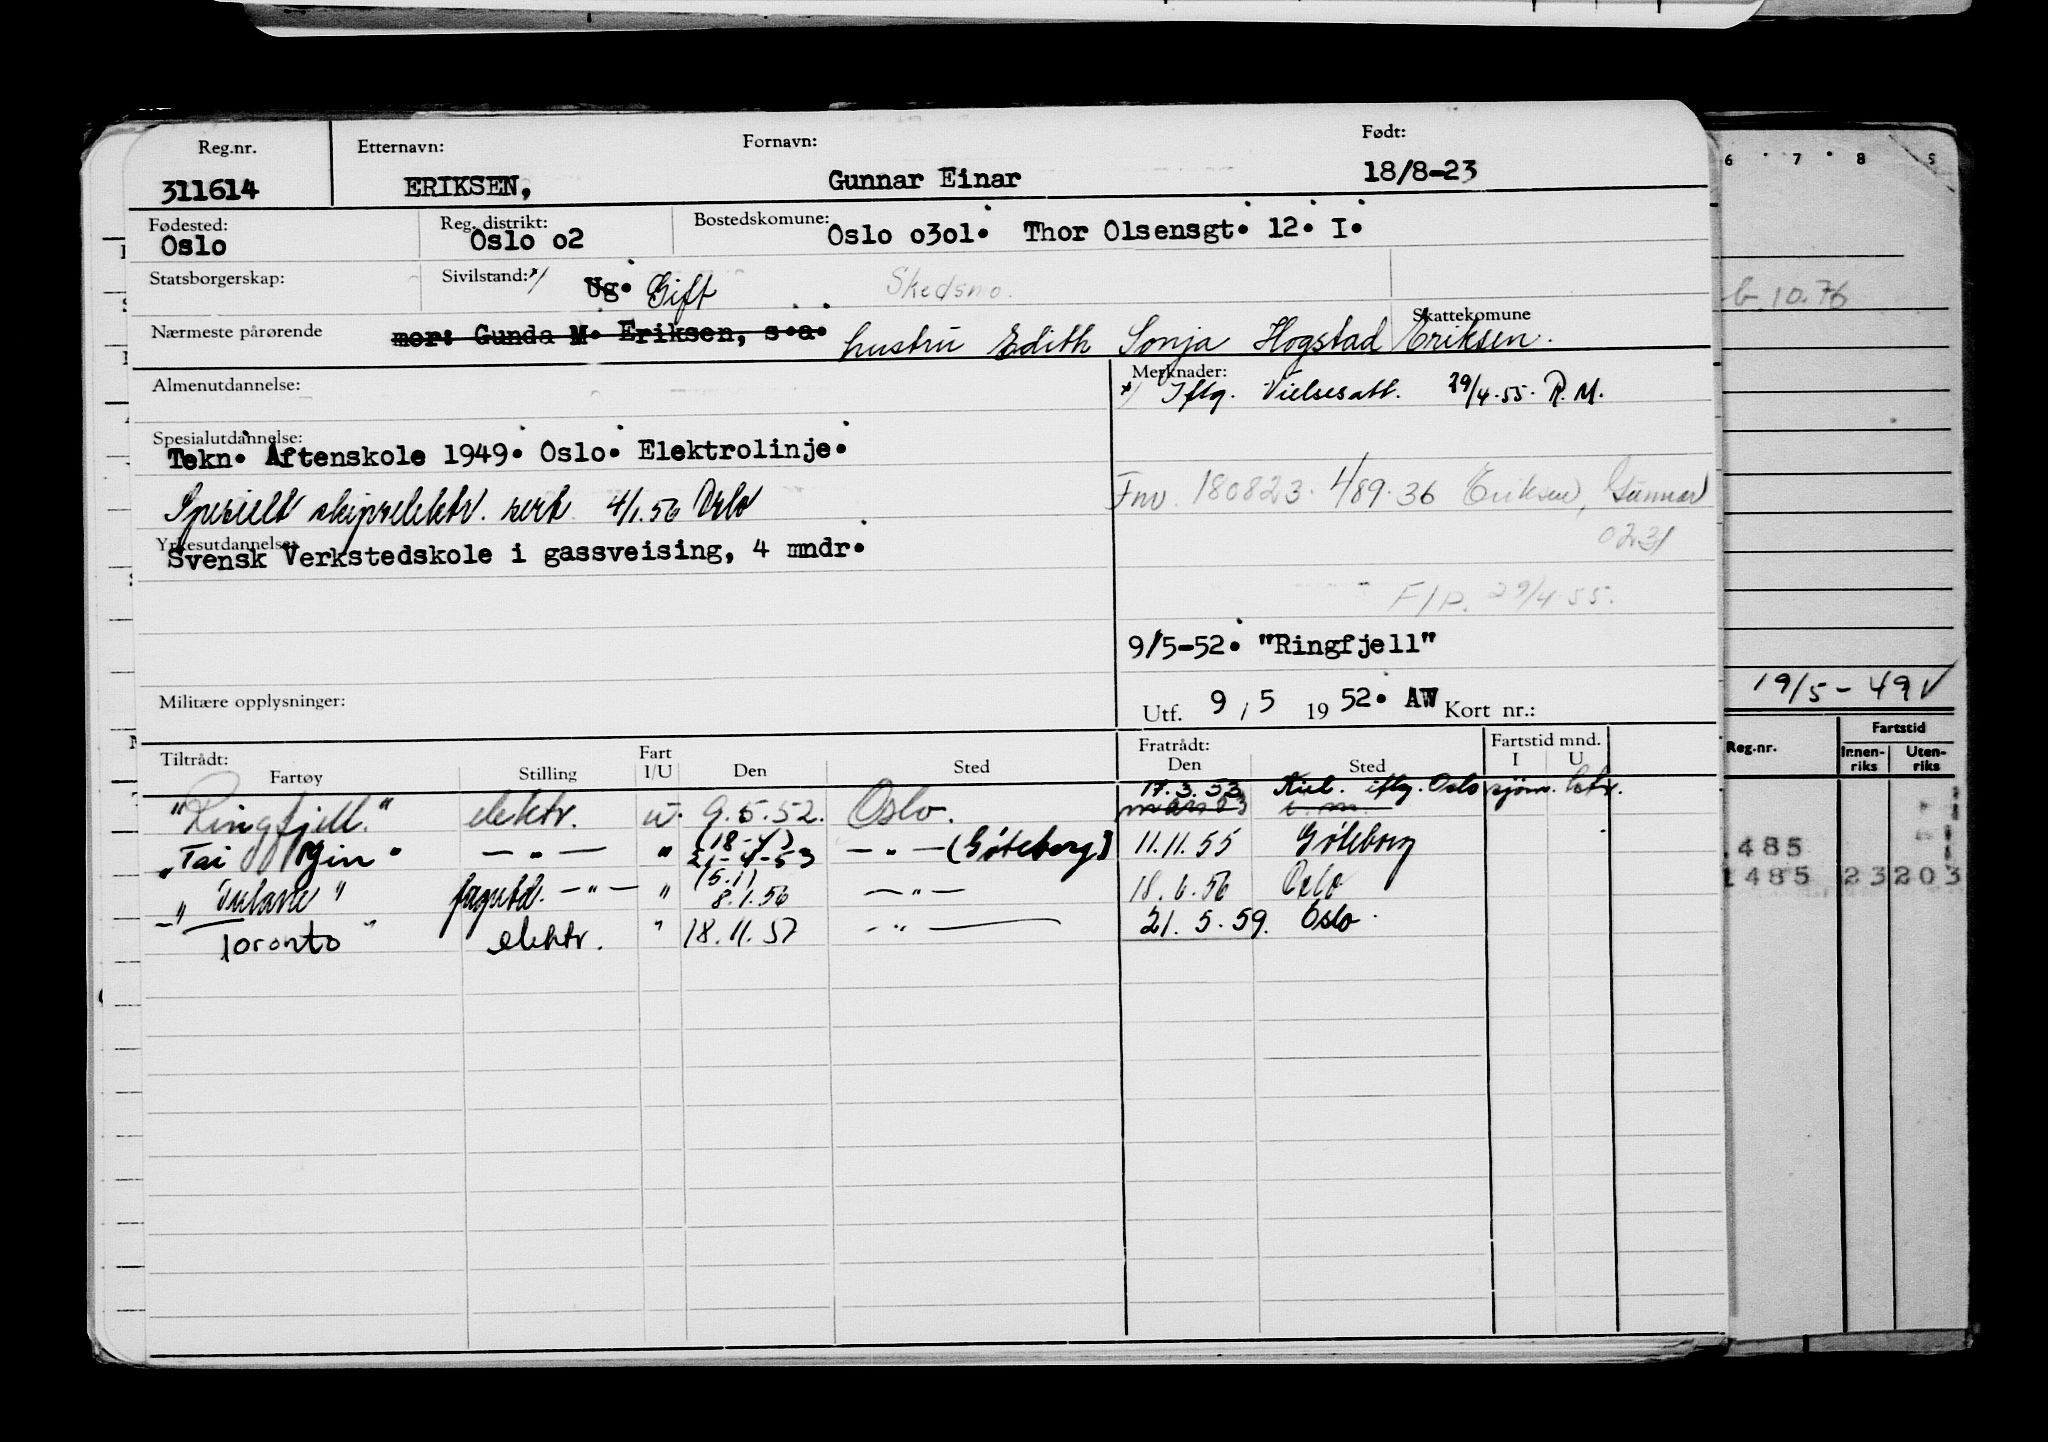 Reg.nr. Etternavn: Fornavn: Født:
311614 ERIKSEN, Gunnar Einar 18/8-23
Fødested: Reg. distrikt: Bostedskomune:
Oslo Oslo o2 Oslo o3o1. Thor Olsensgt. 12. I.
Statsborgerskap: Sivilstand: x/ Ug. Gift Skedsmo.
Nærmeste pårørende mor: Gunda M. Eriksen, s.a. hustru Edith Sonja Hogstad Eriksen.
Skattekomune
Almenutdannelse: Merknader:
x/ Iflg. Vielsesatt. 29/4.55. R.M.
Spesialutdannelse:
Tekn. Aftenskole 1949. Oslo. Elektrolinje.
Spesielt skipselektr. sert 4/1.56 Oslo
Fnr. 180823. 489.36 Eriksen, Gunnar
0231
Yrkesutdannelse:
Svensk Verkstedskole i gassveising, 4 mndr.
F/P. 29/4.55.
9/5-52. "Ringfjell"
Militære opplysninger: Utf. 9 / 5 1952. AW Kort nr.:
Tiltrådt: Fart Fratrådt: Fartstid mnd.
Fartøy Stilling I/U Den Sted Den Sted I U
"Ringfjell." elektr. u. 9.5.52. Oslo. 17.3.53 Kiel. iflg. Oslo sjøm.
"Tai Yin" — " — " (18-4) 21-4-53 — " — (Göteborg) 11.11.55 Göteborg
"Tulane" fagutd. — " — " (5.1) 8.1.56 — " — 18.6.56 Oslo
— " — Toronto " elektr. " 18.11.57 — " — 21.5.59. Oslo.
6 . 7 . 8
10.76
19/5-49 V
Reg.nr. Fartstid
Innen-riks Uten-riks
485
1485 23 203